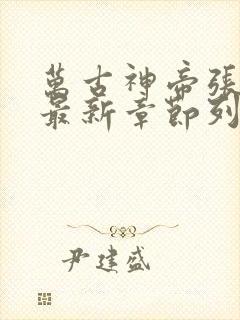 萬古神帝張
最新章節列
尹建盛